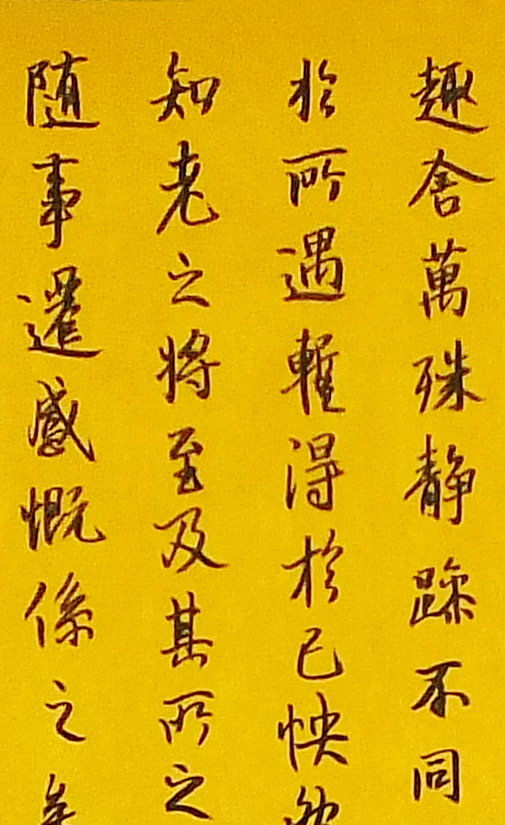 趣舍萬殊静躁不同
於所遇暫得於己怏
知老之将至及其所之
随事遷感慨係之